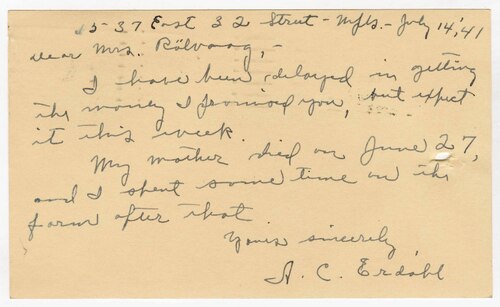 1537 East 32 Street - Mpls. - July 14, '41
Dear Mrs. Rölvaag, -
I have been delayed in getting
the money I promised you, but expect
it this week.
My mother died on June 27,
and I spent some time on the
farm after that
Yours sincerely,
A. C. Erdahl